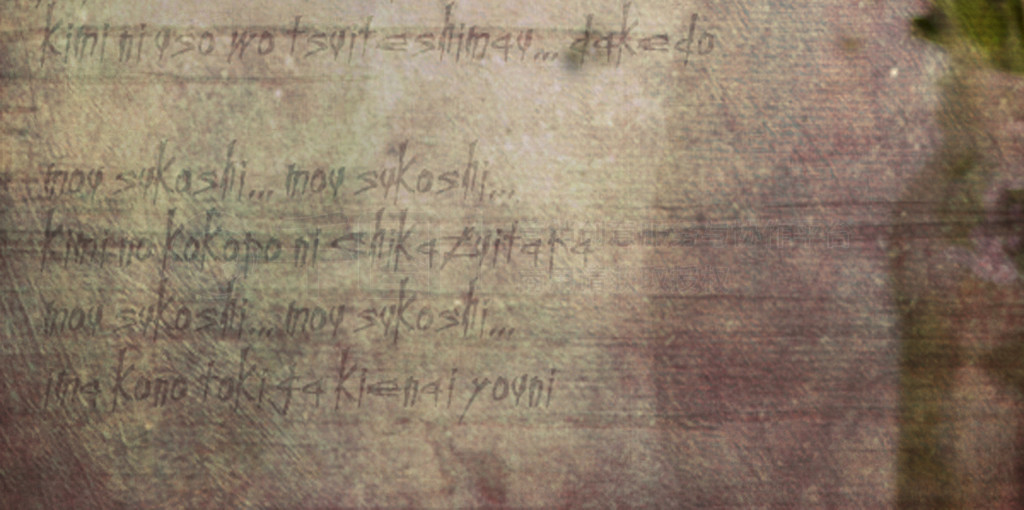 kimi ni uso wo tsuiteshimau... dakedo
mou sukoshi... mou sukoshi...
kimi no kokoro ni chikazuitara
mou sukoshi... mou sukoshi...
ima kono toki ga kienai youni